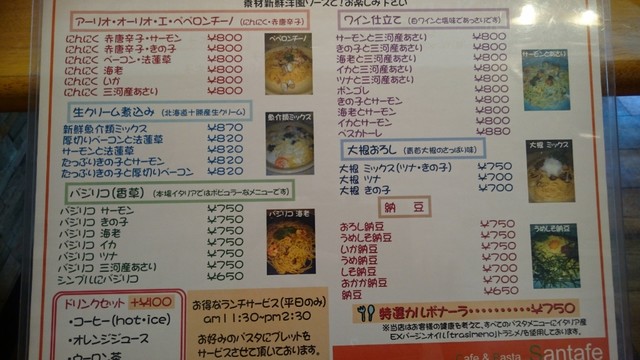 素材新鮮洋風ソースで！お楽しみ下さい
アーリオ・オーリオ・エ・ペペロンチーノ (にんにく・赤唐辛子)
にんにく 赤唐辛子・サーモン ¥800
にんにく 赤唐辛子・きの子 ¥800
にんにく ベーコン・法蓮草 ¥800
にんにく 海老 ¥800
にんにく いか ¥800
にんにく 赤唐辛子 ¥800
ペペロンチーノ
生クリーム煮込み (北海道十勝産生クリーム)
新鮮魚介類ミックス ¥870
厚切りベーコンと法蓮草 ¥820
サーモンと法蓮草 ¥820
たっぷりきの子とサーモン ¥820
たっぷりきの子と厚切りベーコン ¥820
魚介類ミックス
バジリコ(香草) (本場イタリアではポピュラーなメニューです)
バジリコ サーモン ¥750
バジリコ きの子 ¥750
バジリコ 海老 ¥750
バジリコ イカ ¥750
バジリコ ツナ ¥750
バジリコ 三河産あさり ¥750
シンプルにバジリコ ¥650
バジリコ 海老
ドリンクセット +¥400
・コーヒー(hot・ice)
・オレンジジュース
・ウーロン茶
お得なランチサービス(平日のみ)
am11:30~pm2:30
お好みのパスタにブレットを
サービスさせて頂いております。
ワイン仕立て (白ワインと塩味であっさりです)
サーモンと三河産あさり ¥800
きの子と三河産あさり ¥800
海老と三河産あさり ¥800
イカと三河産あさり ¥800
ツナと三河産あさり ¥800
ボンゴレ ¥800
きの子とサーモン ¥800
海老とサーモン ¥800
イカとサーモン ¥800
ペスカトーレ ¥880
サーモンとあさり
大根おろし (青首大根のさっぱり味)
大根 ミックス(ツナ・きの子) ¥750
大根 ツナ ¥700
大根 きの子 ¥700
大根 ミックス
納 豆
おろし納豆 ¥750
うめしそ納豆 ¥750
いか納豆 ¥750
うめ納豆 ¥700
しそ納豆 ¥700
おかか納豆 ¥700
納豆 ¥650
うめしそ納豆
特選カルボナーラ・・・・・・・・・・¥750
※当店はお客様の健康を考えて、すべてのパスタメニューにイタリア産
EXバージンオイル(Trasimeno)トラシメネを使用しております。
afe & asta antafe